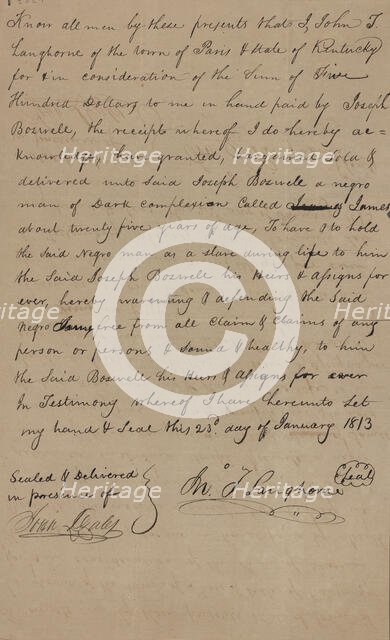 Know all men by these presents that I, John T
Langhorne of the town of Paris & State of Kentucky
for & in consideration of the Sum of Five
Hundred Dollars to me in hand paid by Joseph
Boswell, the receipt whereof I do hereby ac-
knowledge, have granted, bargained Sold &
delivered unto Said Joseph Boswell a negro
man of Dark complexion Called James
about twenty five years of age, To have & to hold
the Said Negro man as a slave during life to him
the Said Joseph Boswell his Heirs & Assigns for
ever, hereby warrenting & defending the Said
Negro free from all Claim & Claims of any
person or persons, & Sound & healthy, to him
the Said Boswell his Heirs & Assigns for ever
In Testimony whereof I have hereunto Set
my hand & Seal this 23d day of January 1813
Sealed & Delivered
in presence of
Jno T Langhorne Seal
Heritage Heritage
Heritage Heritage
Heritage Heritage
Heritage Heritage
C